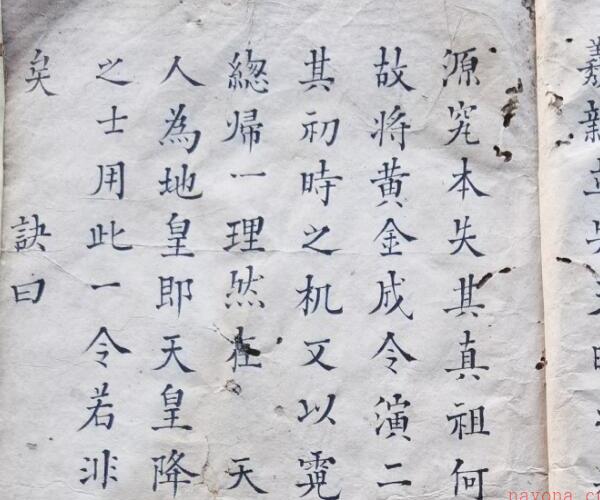 源究本失其真祖何
故将黄金成令演二
其初時之机又以霓
總歸一理然在 天
人為地皇即天皇降
之士用此一令若非
矣 訣曰